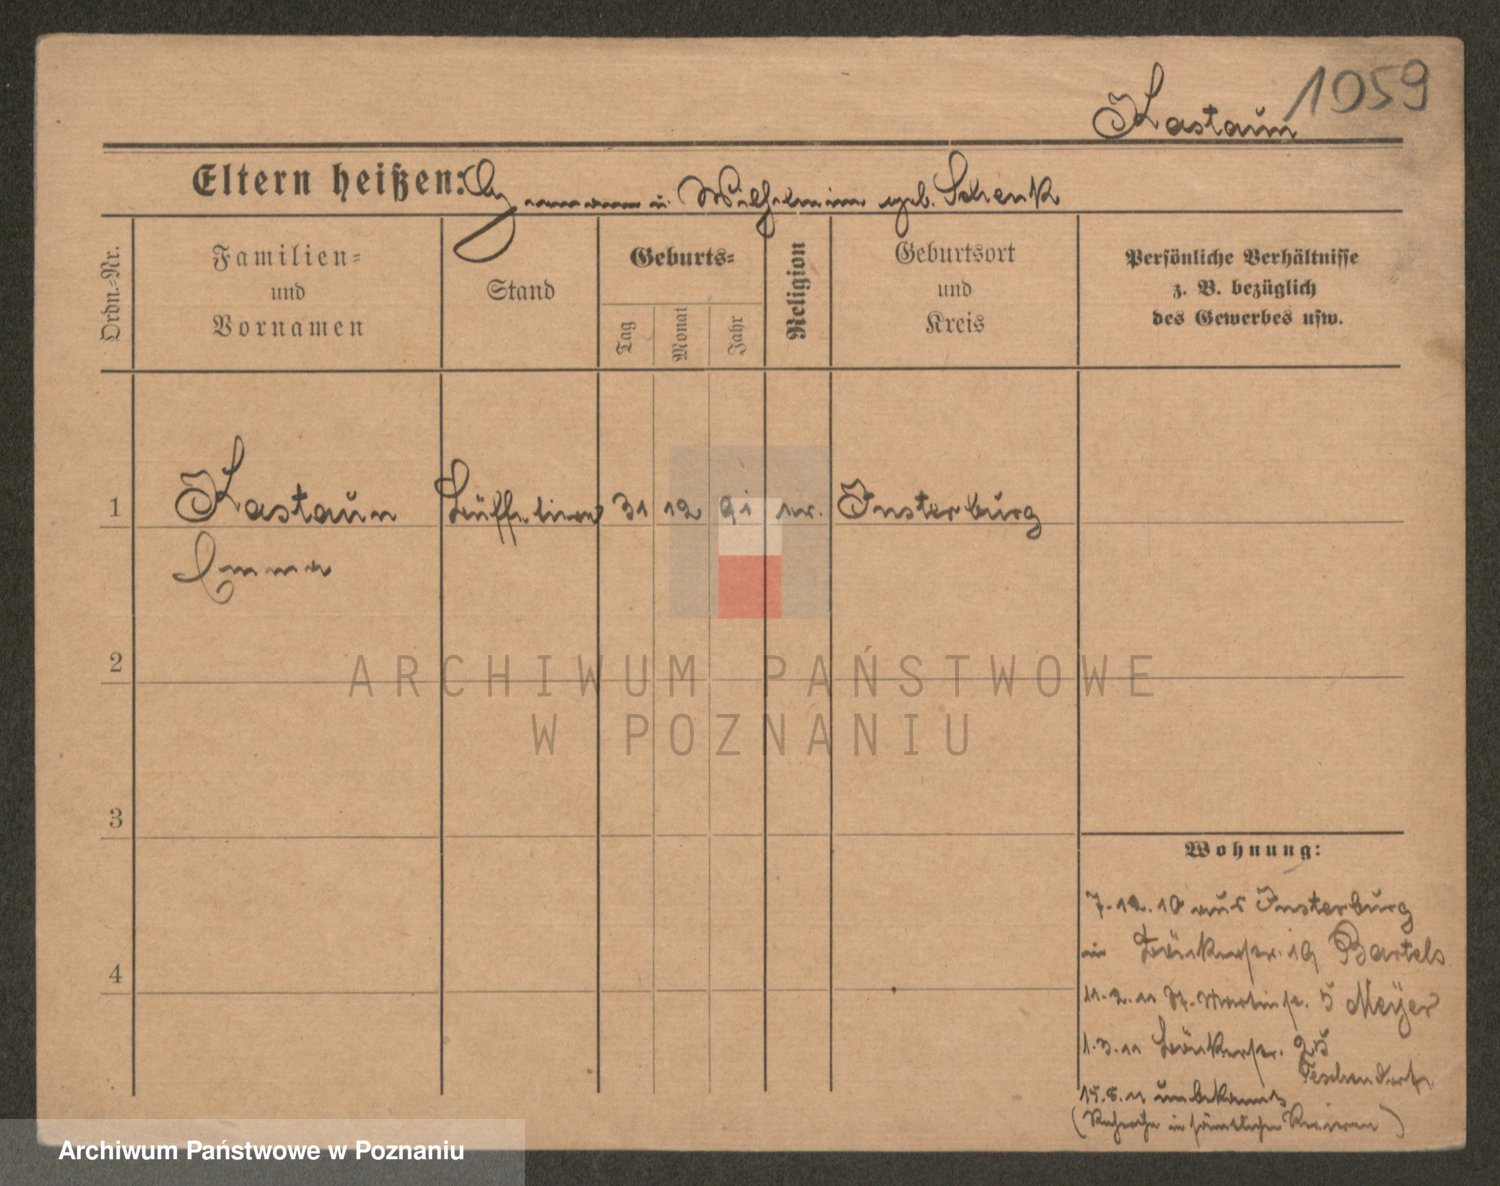 1059
Kastaun
Eltern heißen: u. Wilhelmine geb. Schenk
Ordn.-Nr.
Familien-
und
Vornamen
Stand
Geburts-
Tag
Monat
Jahr
Religion
Geburtsort
und
Kreis
Persönliche Verhältnisse
z. B. bezüglich
des Gewerbes usw.
1 Kastaun Büffetiere 31 12 91 ev. Insterburg
Emma
2
3
4
Wohnung:
7.12.10 aus Insterburg
in Bäckerstr. 19 Bartels
11.2.11 St. Martinstr. 5 Meÿer
1.3.11 Bäckerstr. 25
Teschendorf
15.8.11 unbekannt
in sämtlichen Revieren)
ARCHIWUM PAŃSTWOWE
W POZNANIU
Archiwum Państwowe w Poznaniu